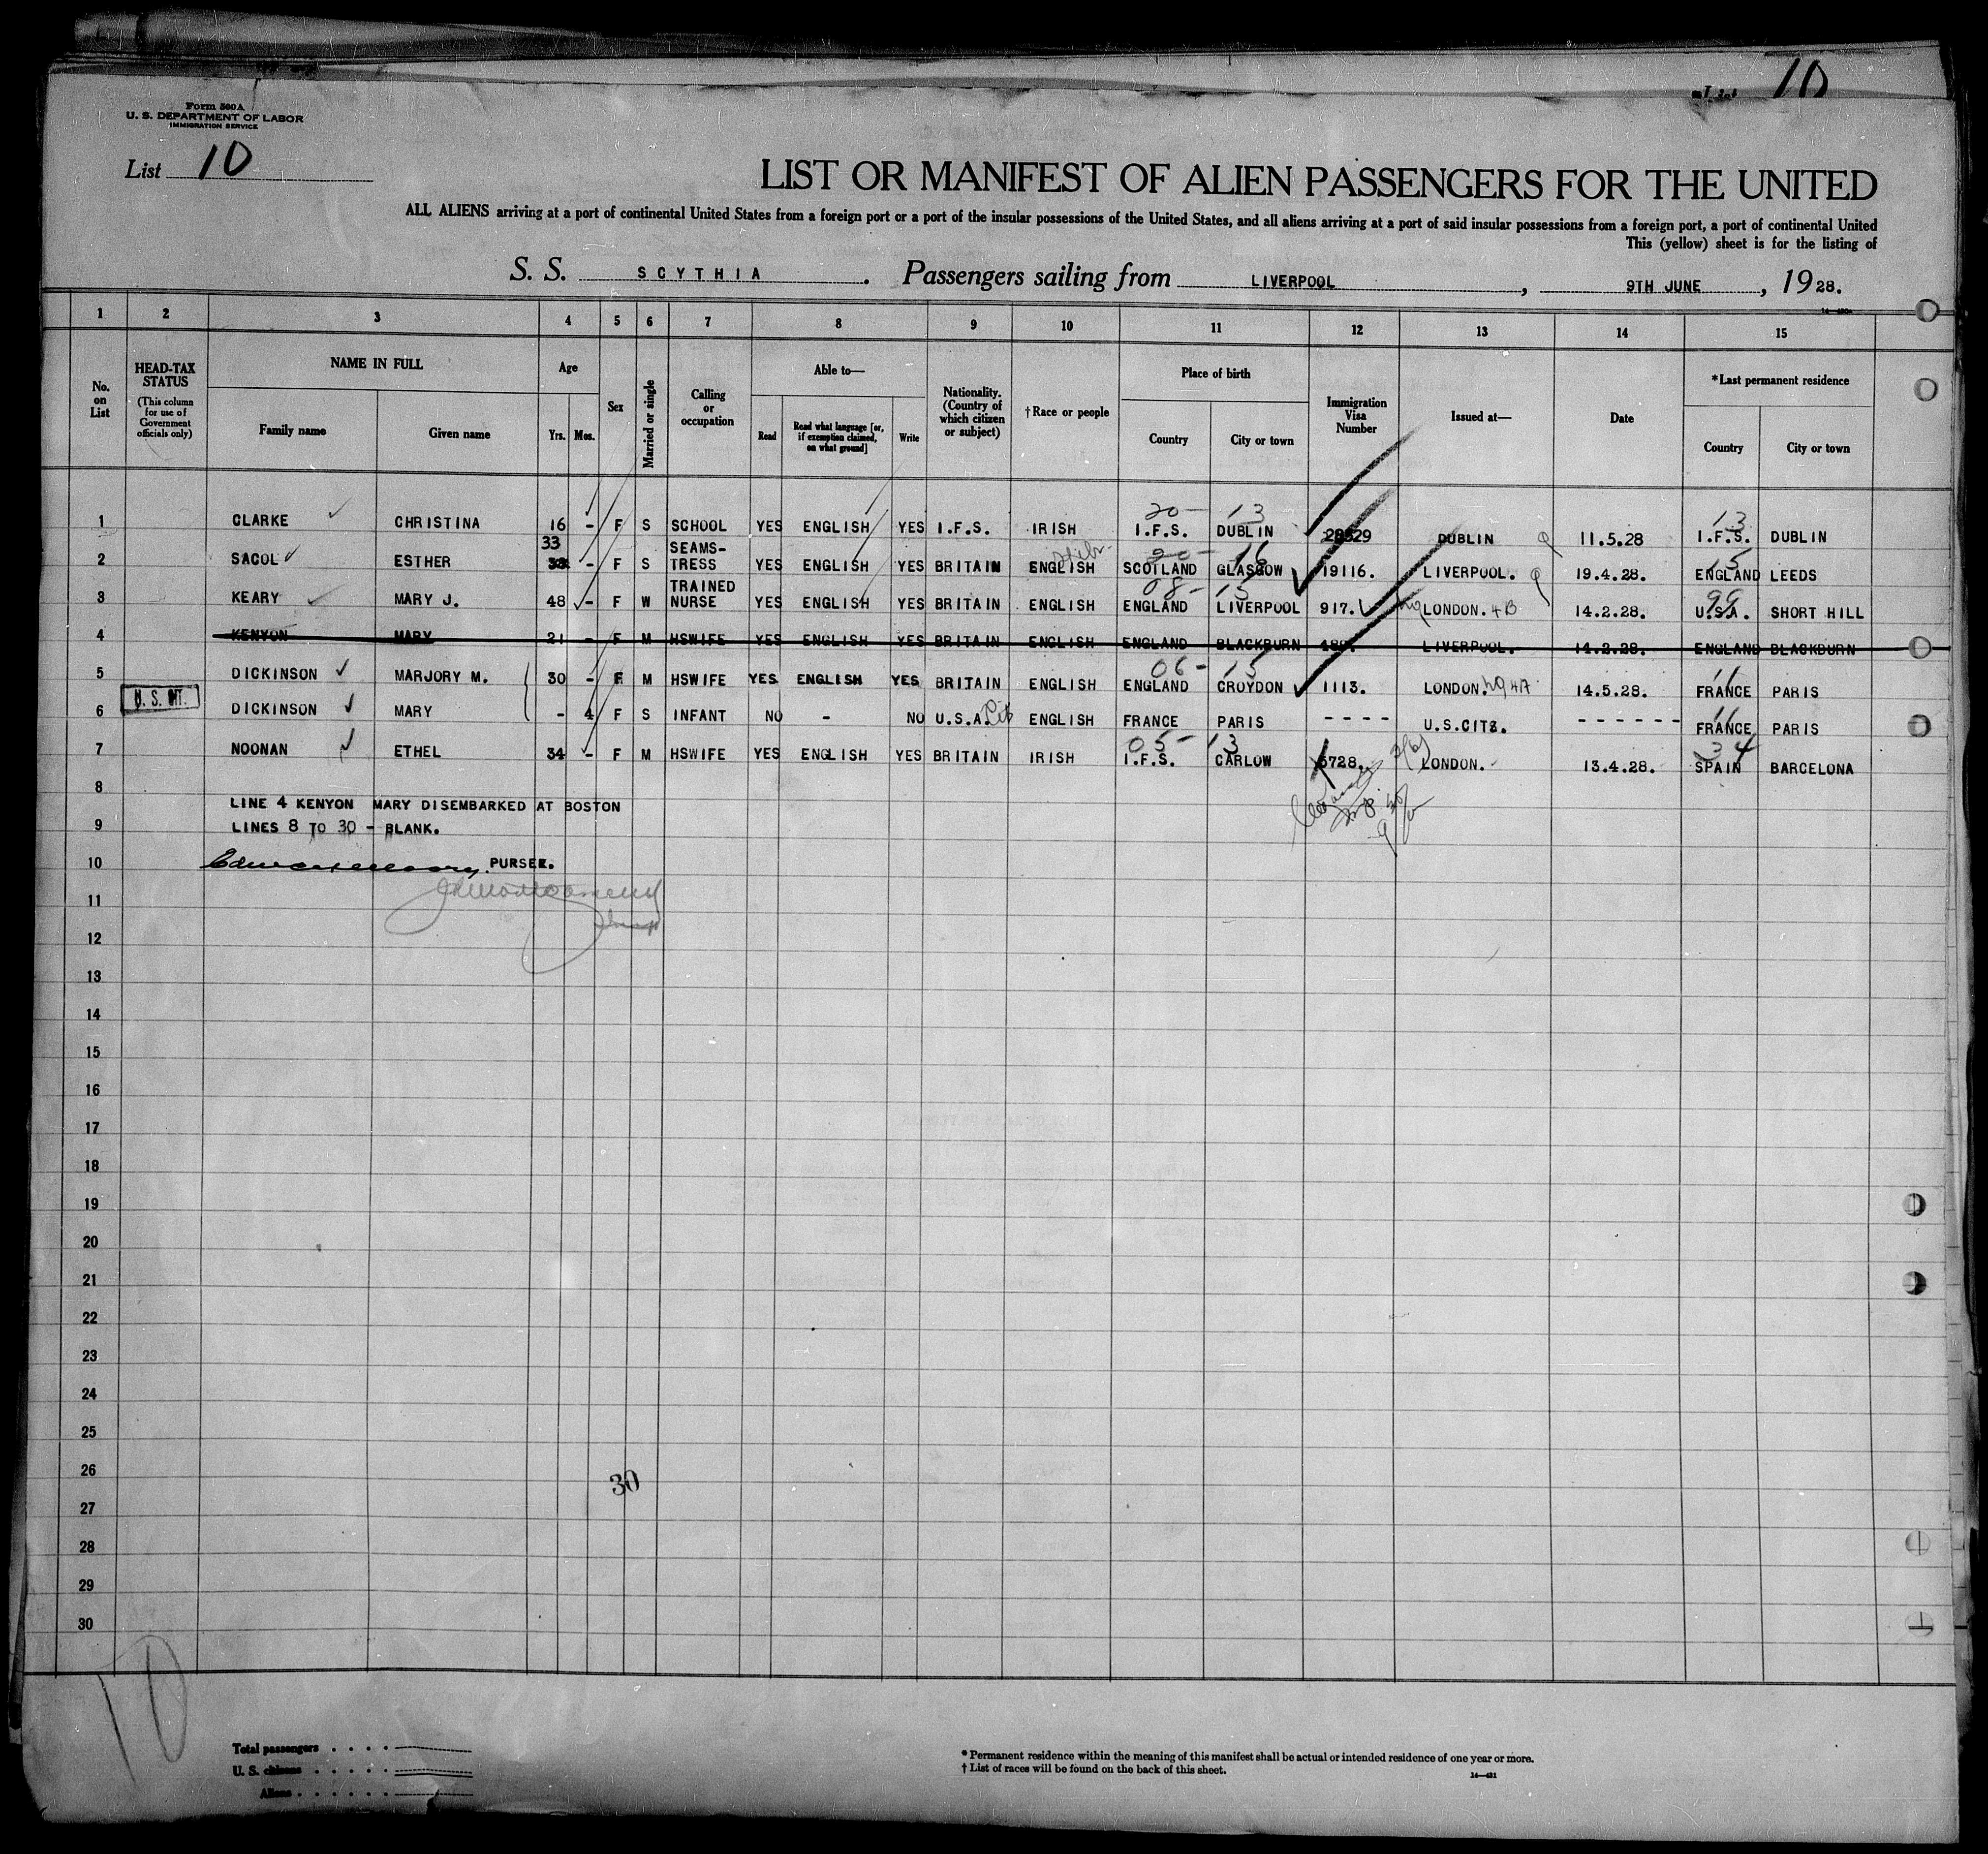 List 10
Form 500 A
U. S. DEPARTMENT OF LABOR
IMMIGRATION SERVICE
List 10
LIST OR MANIFEST OF ALIEN PASSENGERS FOR THE UNITED
ALL ALIENS arriving at a port of continental United States from a foreign port or a port of the insular possessions of the United States, and all aliens arriving at a port of said insular possessions from a foreign port, a port of continental United
This (yellow) sheet is for the listing of
S. S. SCYTHIA. Passengers sailing from LIVERPOOL, 9TH JUNE, 1928.
1 2 3 4 5 6 7 8 9 10 11 12 13 14 15
No. on List
HEAD-TAX STATUS (This column for use of Government officials only)
NAME IN FULL
Family name Given name
Age
Yrs. Mos.
Sex
Married or single
Calling or occupation
Able to—
Read Read what language [or, if exemption claimed, on what ground] Write
Nationality. (Country of which citizen or subject)
†Race or people
Place of birth
Country City or town
Immigration Visa Number
Issued at—
Date
*Last permanent residence
Country City or town
20- 13 13
1 CLARKE CHRISTINA 16 - F S SCHOOL YES ENGLISH YES I.F.S. IRISH I.F.S. DUBLIN 28529 DUBLIN 11.5.28 I.F.S. DUBLIN
33 Hebr 20- 16 15
2 SACOL ESTHER - F S SEAMS-TRESS YES ENGLISH YES BRITAIN ENGLISH SCOTLAND GLASGOW 19116. LIVERPOOL. 19.4.28. ENGLAND LEEDS
08- 15 99
3 KEARY MARY J. 48 - F W TRAINED NURSE YES ENGLISH YES BRITAIN ENGLISH ENGLAND LIVERPOOL 917. LONDON. 4B 14.2.28. U.S.A. SHORT HILL
4 KENYON MARY 21 - F M HSWIFE YES ENGLISH YES BRITAIN ENGLISH ENGLAND BLACKBURN LIVERPOOL. 14.2.28. ENGLAND BLACKBURN
06- 15 11
5 DICKINSON MARJORY M. 30 - F M HSWIFE YES ENGLISH YES BRITAIN ENGLISH ENGLAND CROYDON 1113. LONDON. nq 4A 14.5.28. FRANCE PARIS
11
6 DICKINSON MARY - 4 F S INFANT NO - NO U.S.A. ENGLISH FRANCE PARIS ---- U.S.CITZ. ------ FRANCE PARIS
05- 13 34
7 NOONAN ETHEL 34 - F M HSWIFE YES ENGLISH YES BRITAIN IRISH I.F.S. CARLOW 6728. LONDON. 13.4.28. SPAIN BARCELONA
8 LINE 4 KENYON MARY DISEMBARKED AT BOSTON
9 LINES 8 TO 30 - BLANK.
10 PURSER.
11
12
13
14
15
16
17
18
19
20
21
22
23
24
25
26
30
27
28
29
30
10
Total passengers
U. S. citizens
Aliens
* Permanent residence within the meaning of this manifest shall be actual or intended residence of one year or more.
† List of races will be found on the back of this sheet.
14—421